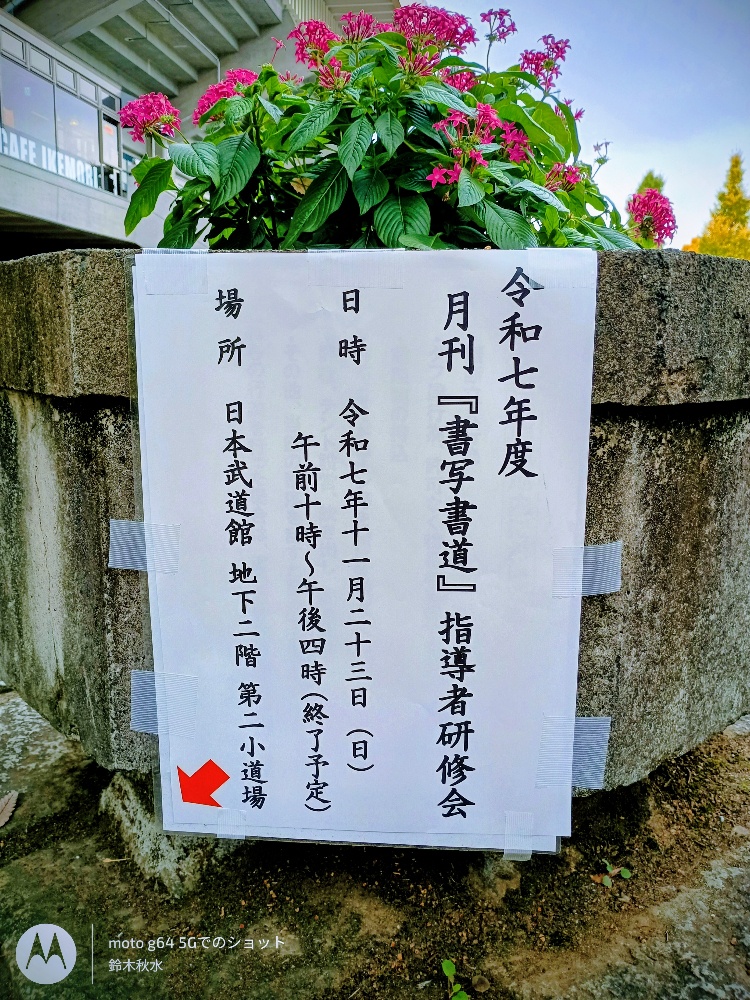 令和七年度
月刊『書写書道』指導者研修会
日時 令和七年十一月二十三日（日）
午前十時～午後四時（終了予定）
場所 日本武道館 地下二階 第二小道場
CAFE IKEMORI
moto g64 5Gでのショット
鈴木秋水